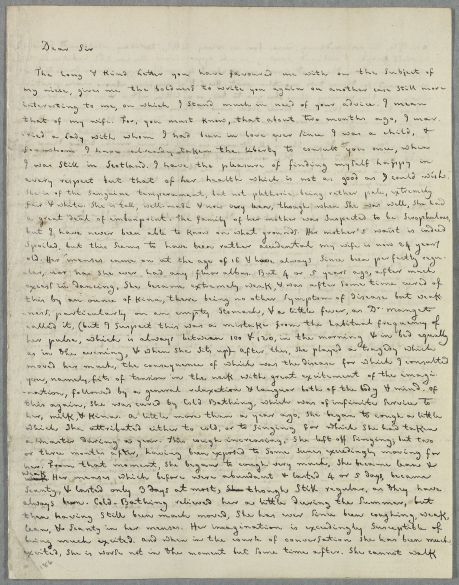 Dear Sir
The long & kind letter you have favoured me with on the subject of
my niece, gives me the boldness to write you again on another case still more
interesting to me, on which I stand much in need of your advice. I mean
that of my wife. For, you must know, that about two months ago, I mar-
ried a lady with whom I had been in love ever since I was a child, &
for whom I have already taken the liberty to consult you once, when
I was still in Scotland. I have the pleasure of finding myself happy in
every respect but that of her health which is not as good as I could wish.
She is of the sanguine temperament, but not plethoric, being rather pale, extremely
fair & white. She is tall, well-made & now very lean, though when she was well, she had
a great deal of embonpoint. The family of her mother was suspected to be scrophulous,
but I have never been able to know on what grounds. Her mother's waist is indeed
spoiled, but this seems to have been rather accidental. My wife is now 24 years
old. Her menses came on at the age of 15 & have always since been perfectly regu-
lar, nor has she ever had any fluor albus. But 4 or 5 years ago, after much
excess in dancing, she became extremely weak, & was after some time cured of
this by an ounce of Kina, there being no other symptom of disease but weak-
ness, particularly on an empty stomach, & a little fever, as Dr. Manget
called it, (but I suspect this was a mistake from the habitual frequency of
her pulse, which is always between 100 & 120, in the morning & in bed equally
as in the evening, & when she sits up). After this, she played a tragedy which
moved her much, the consequence of which was the disease for which I consulted
you, namely, fits of tension in the neck with great excitement of the imagi-
nation, followed by a general relaxation & languor both of the body & mind. Of
this again, she was cured by Cold Bathing, which was of infinite service to
her, milk & Kina. A little more than a year ago, she began to cough a little
which she attributed either to cold, or to singing for which she had taken
a Master during a year. This cough increasing, she left off singing, but two
or three months after, having been exposed to some scenes exceedingly moving for
her. From that moment, she began to cough very much, she became lean &
weak. Her menses which before were abundant & lasted 4 or 5 days, became
scanty, & lasted only 2 days at most, though still regular, as they have
always been. Cold-Bathing relieved her a little during the Summer, but
then having still been much moved, she has ever since been coughing, weak,
lean, & scanty in her menses. Her imagination is exceedingly susceptible of
being much excited, and when in the course of conversation she has been much
excited, she is worse not in the moment but some time after. She cannot walk